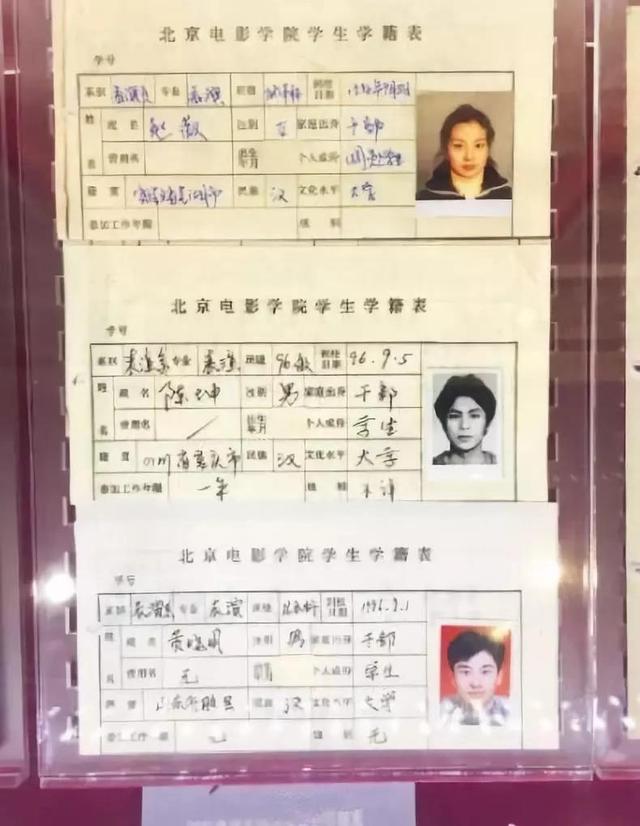 北京电影学院学生学籍表
学号
系别 表演系 专业 表演 班级 到校日期
姓名 现名 赵薇 性别 女 家庭出身 干部
曾用名 出生年月 个人成份
籍贯 民族 汉 文化水平 大学
参加工作年限
北京电影学院学生学籍表
学号
系别 表演系 专业 表演 班级 96级 到校日期 96.9.5
姓名 现名 陈坤 性别 男 家庭出身 干部
曾用名 / 出生年月 个人成份 学生
籍贯 四川省重庆市 民族 汉 文化水平 大学
参加工作年限 一年
北京电影学院学生学籍表
学号
系别 表演系 专业 表演 班级 到校日期 1996.9.1
姓名 现名 黄晓明 性别 男 家庭出身 干部
曾用名 无 个人成份 学生
籍贯 民族 汉 文化水平 大学
参加工作年限 无 无